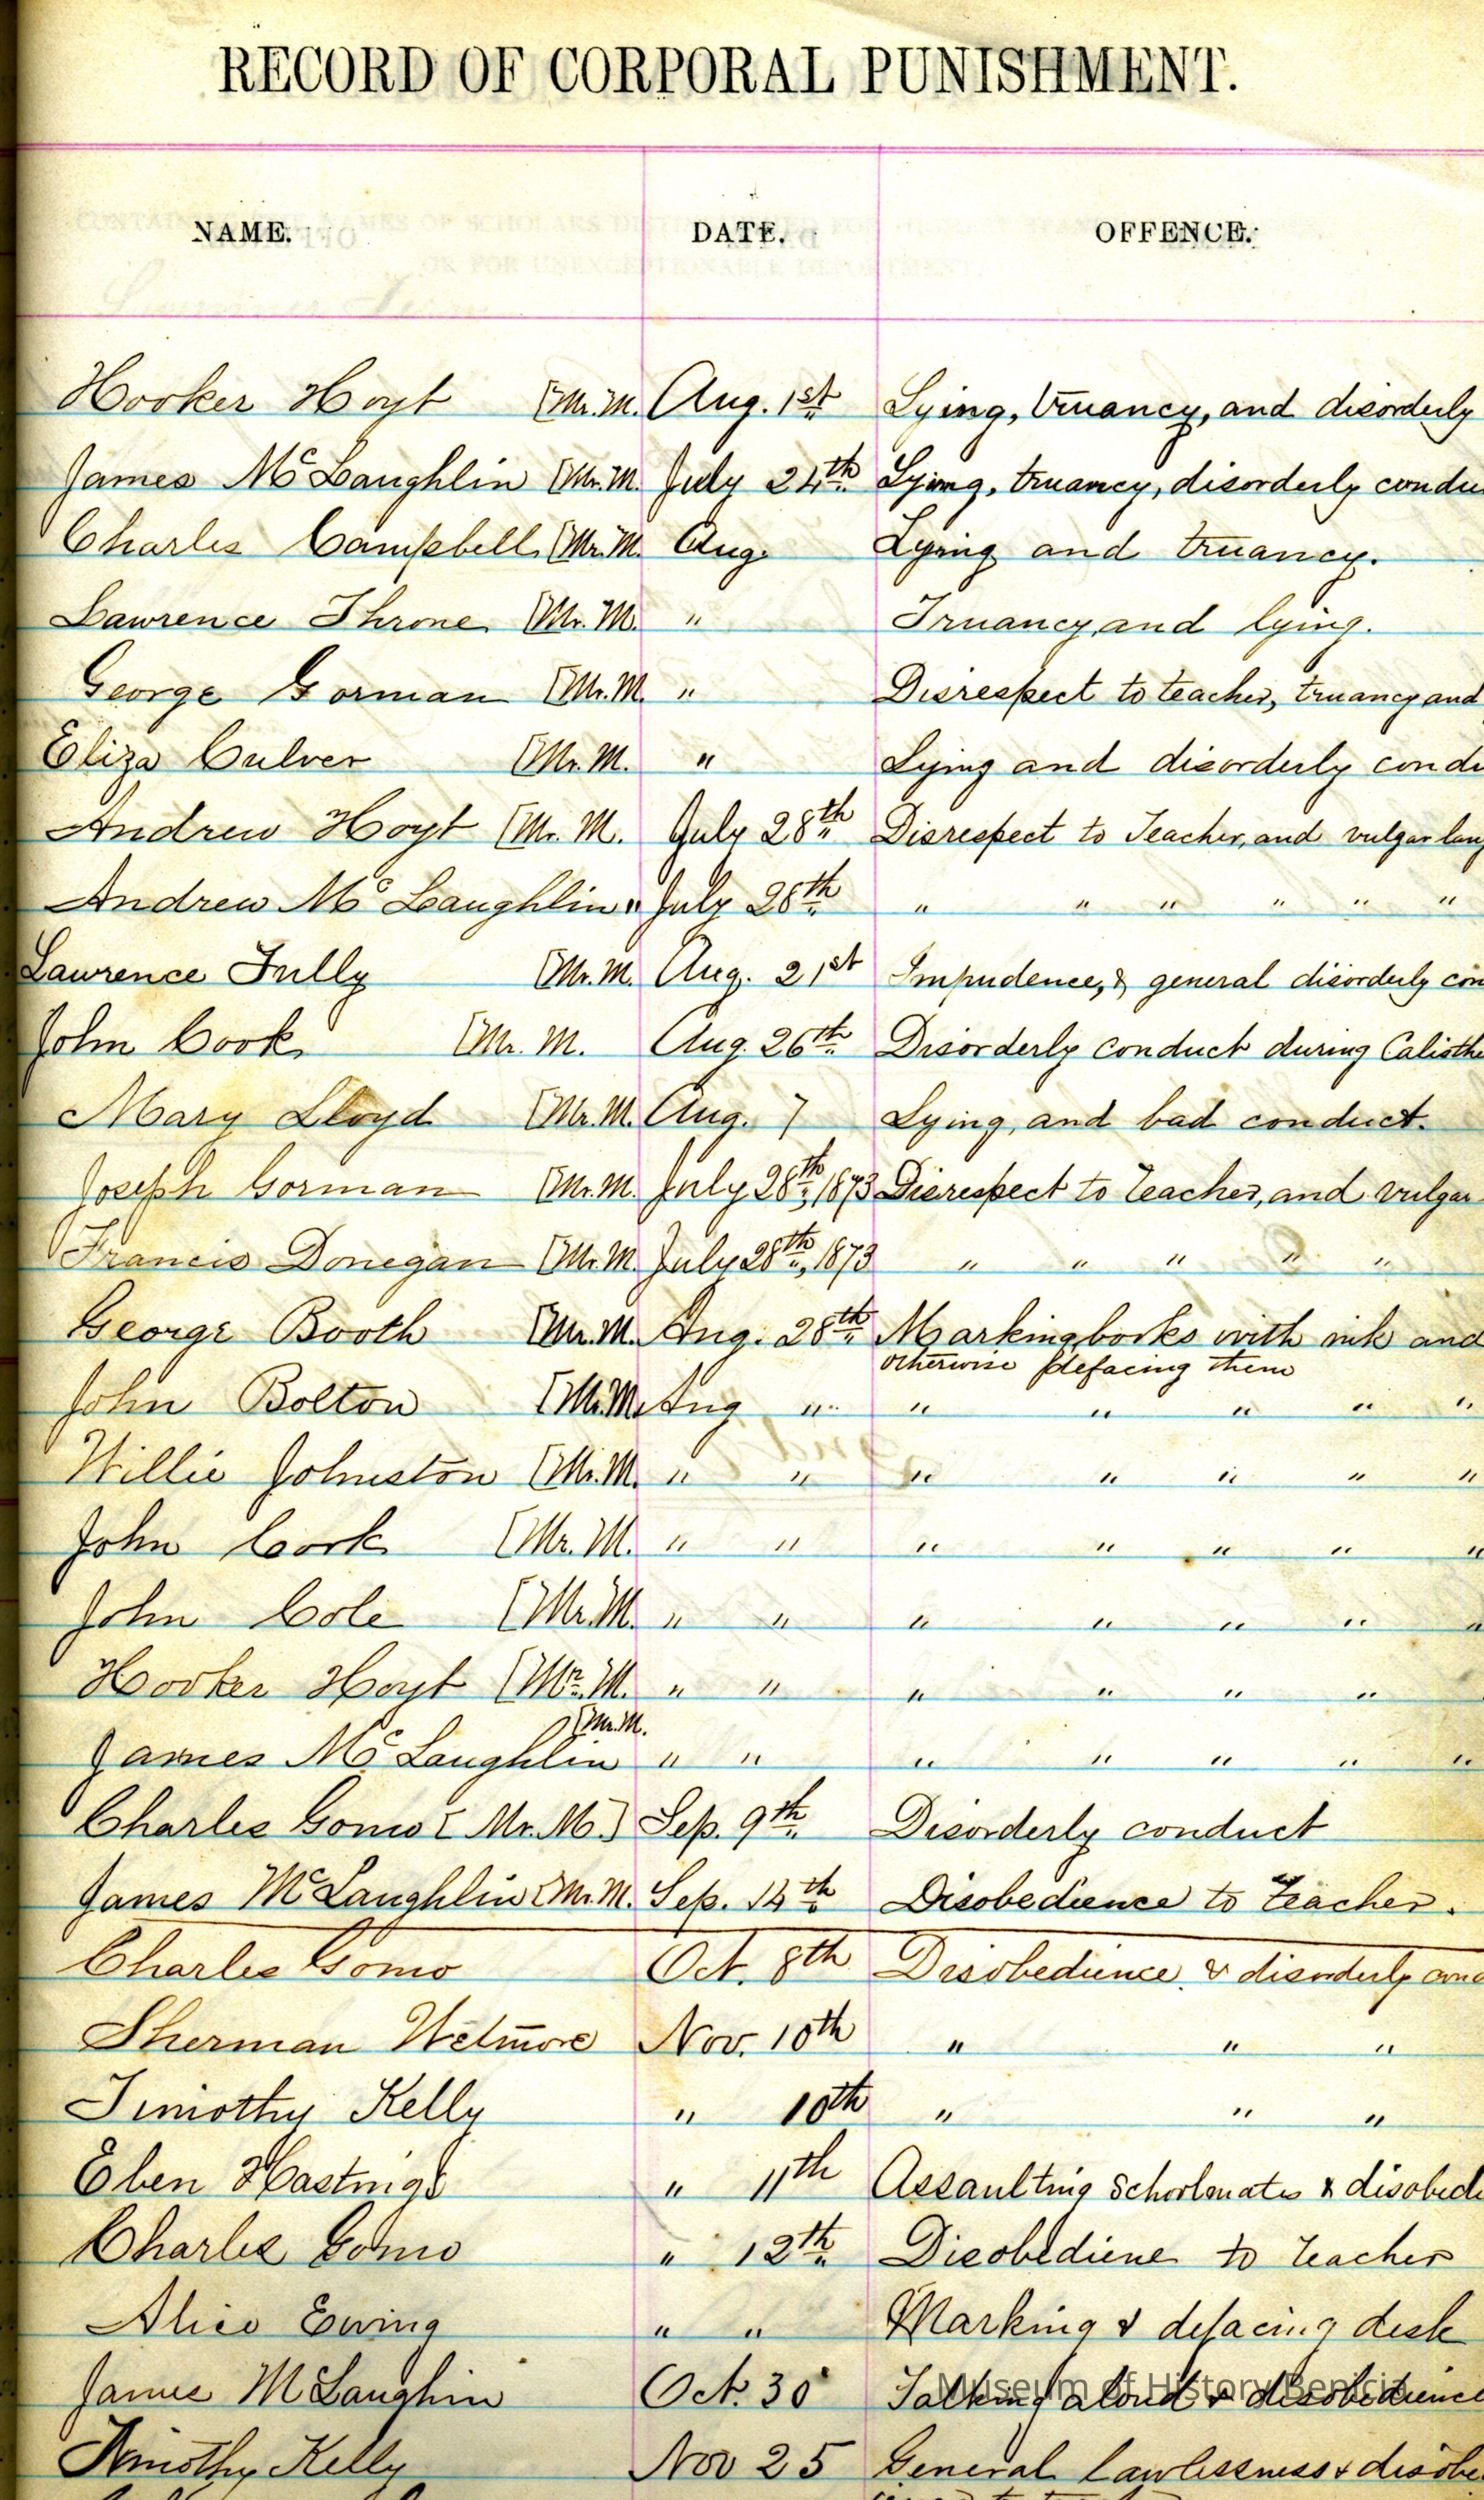 RECORD OF CORPORAL PUNISHMENT.
NAME. DATE. OFFENCE.
Hooker Hoyt [Mr. M. Aug. 1st Lying, truancy, and disorderly
James McLaughlin [Mr. M. July 24th Lying, truancy, disorderly condu
Charles Campbell [Mr. M. Aug. Lying and truancy.
Lawrence Throne [Mr. M. " Truancy and lying.
George Gorman [Mr. M. " Disrespect to teacher, truancy and
Eliza Culver [Mr. M. " Lying and disorderly condu
Andrew Hoyt [Mr. M. July 28th Disrespect to Teacher, and vulgar lang
Andrew McLaughlin " July 28th " " " " " "
Lawrence Tully [Mr. M. Aug. 21st Impudence, & general disorderly con
John Cook [Mr. M. Aug. 26th Disorderly conduct during Calisthe
Mary Lloyd [Mr. M. Aug. 7 Lying, and bad conduct.
Joseph Gorman [Mr. M. July 28th, 1873 Disrespect to teacher, and vulgar
Francis Donegan [Mr. M. July 28th, 1873 " " " " "
George Booth [Mr. M. Aug. 28th Marking books with ink and
otherwise defacing them
John Bolton [Mr. M. Aug " " " " " "
Willie Johnston [Mr. M. " " " " " " "
John Cook [Mr. M. " " " " " " "
John Cole [Mr. M. " " " " " " "
Hooker Hoyt [Mr. M. " " " " " "
[Mr. M.
James McLaughlin " " " " " " "
Charles Gomo [Mr. M.] Sep. 9th Disorderly conduct
James McLaughlin [Mr. M. Sep. 14th Disobedience to teacher.
Charles Gomo Oct. 8th Disobedience & disorderly con
Sherman Wetmore Nov. 10th " " "
Timothy Kelly " 10th " " "
Eben Hastings " 11th Assaulting Schoolmates & disobedi
Charles Gomo " 12th Disobediene to teacher
Alice Ewing " " Marking & defacing desk
James McLaughin Oct. 30 Talking aloud & disobedience
Museum of History Benicia
Timothy Kelly Nov 25 General lawlessness & disobe